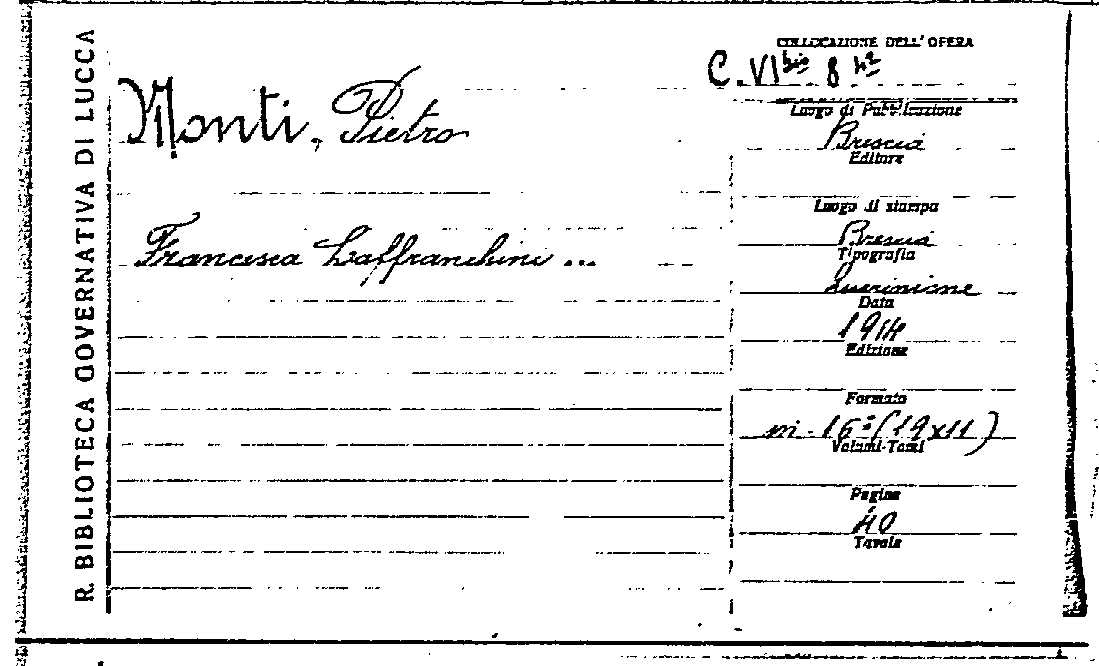 R. BIBLIOTECA GOVERNATIVA DI LUCCA
COLLOCAZIONE DELL'OPERA
C. VI bis 8
Monti, Pietro
Francesca Laffranchini ...
Luogo di Pubblicazione
Brescia
Editore
Luogo di stampa
Brescia
Tipografia
Data
1914
Edizione
Formato
in-16º (19x11)
Volumi-Tomi
Pagine
40
Tavole